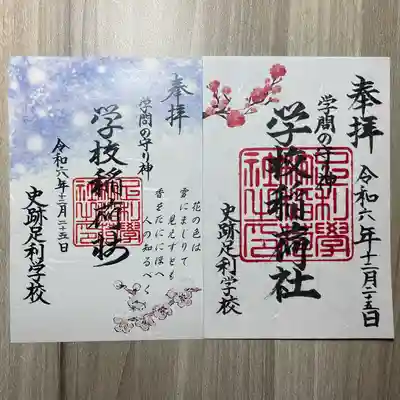 奉拝
学問の守り神
学校稲荷社
令和六年十二月二十五日
史跡足利学校
奉拝
学問の守り神
学校稲荷社
令和六年十二月二十五日
史跡足利学校
花の色は
雪にまじりて
見えずとも
香をだににほへ
人の知るべく